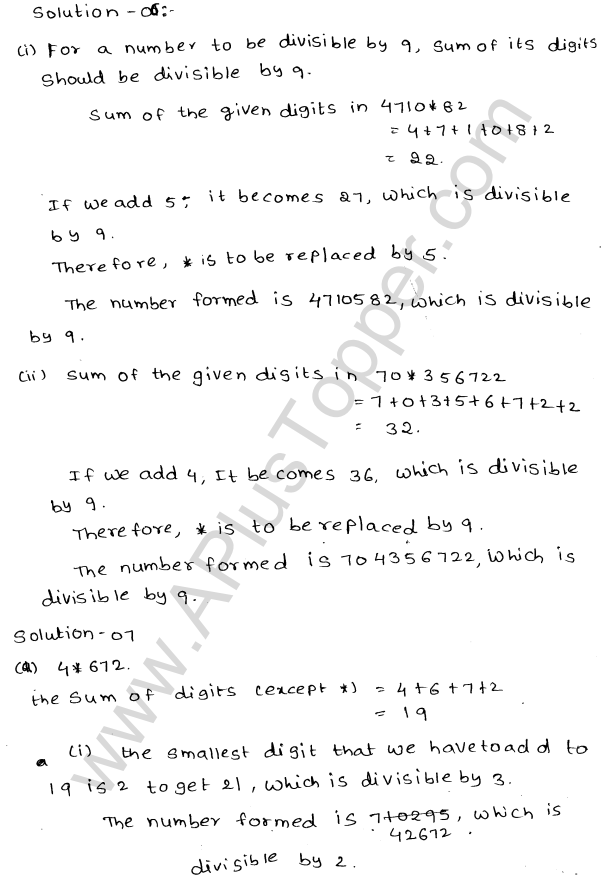 Solution - 06:-
(i) For a number to be divisible by 9, sum of its digits
should be divisible by 9.
Sum of the given digits in 4710*82
= 4+7+1+0+8+2
= 22.
If we add 5; it becomes 27, which is divisible
by 9.
Therefore, * is to be replaced by 5.
The number formed is 4710582, which is divisible
by 9.
(ii) Sum of the given digits in 70*356722
= 7+0+3+5+6+7+2+2
= 32.
If we add 4, It becomes 36, which is divisible
by 9.
Therefore, * is to be replaced by 9.
The number formed is 704356722, which is
divisible by 9.
Solution - 07
(a) 4*672.
the Sum of digits (except *) = 4+6+7+2
= 19
(i) the smallest digit that we have to add to
19 is 2 to get 21, which is divisible by 3.
The number formed is 710295, which is
42672.
divisible by 2.
www.APlusTopper.com